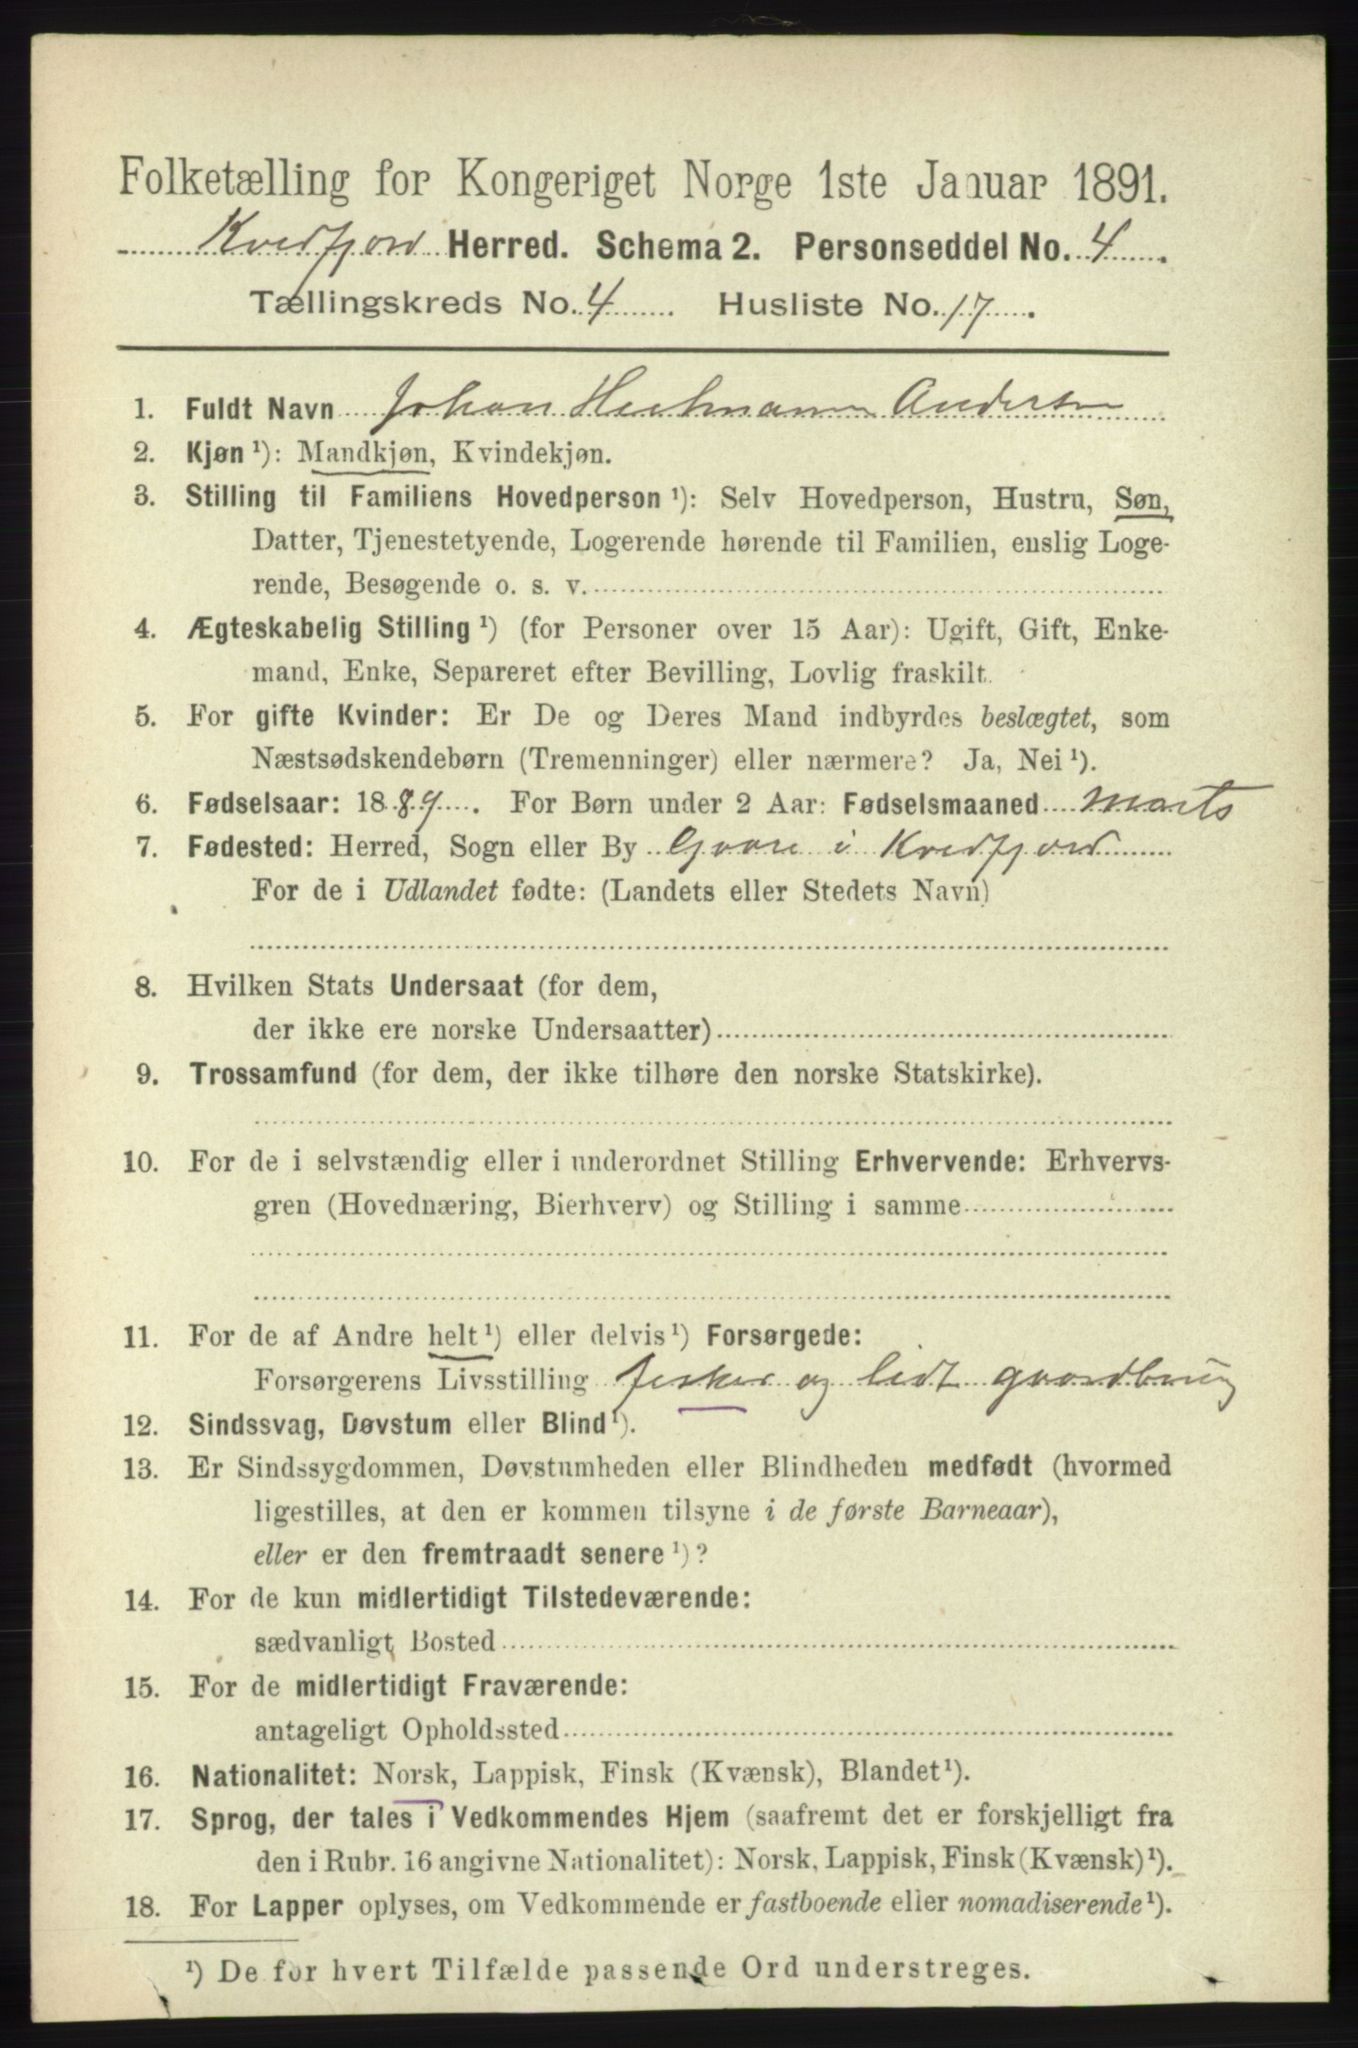 Folketælling for Kongeriget Norge 1ste Januar 1891.
Kvedfjord Herred. Schema 2. Personseddel No. 4.
Tællingskreds No. 4 Husliste No. 17.
1. Fuldt Navn Johan Andersen
2. Kjøn ¹): Mandkjøn, Kvindekjøn.
3. Stilling til Familiens Hovedperson ¹): Selv Hovedperson, Hustru, Søn,
Datter, Tjenestetyende, Logerende hørende til Familien, enslig Loge-
rende, Besøgende o. s. v.
4. Ægteskabelig Stilling ¹) (for Personer over 15 Aar): Ugift, Gift, Enke-
mand, Enke, Separeret efter Bevilling, Lovlig fraskilt.
5. For gifte Kvinder: Er De og Deres Mand indbyrdes beslægtet, som
Næstsødskendebørn (Tremenninger) eller nærmere? Ja, Nei ¹).
6. Fødselsaar: 1889. For Børn under 2 Aar: Fødselsmaaned Marts
7. Fødested: Herred, Sogn eller By i Kvedfjord
For de i Udlandet fødte: (Landets eller Stedets Navn)
8. Hvilken Stats Undersaat (for dem,
der ikke ere norske Undersaatter)
9. Trossamfund (for dem, der ikke tilhøre den norske Statskirke).
10. For de i selvstændig eller i underordnet Stilling Erhvervende: Erhvervs-
gren (Hovednæring, Bierhverv) og Stilling i samme
11. For de af Andre helt ¹) eller delvis ¹) Forsørgede:
Forsørgerens Livsstilling fisker og lidt gaardbrug
12. Sindssvag, Døvstum eller Blind ¹).
13. Er Sindssygdommen, Døvstumheden eller Blindheden medfødt (hvormed
ligestilles, at den er kommen tilsyne i de første Barneaar),
eller er den fremtraadt senere ¹)?
14. For de kun midlertidigt Tilstedeværende:
sædvanligt Bosted
15. For de midlertidigt Fraværende:
antageligt Opholdssted
16. Nationalitet: Norsk, Lappisk, Finsk (Kvænsk), Blandet ¹).
17. Sprog, der tales i Vedkommendes Hjem (saafremt det er forskjelligt fra
den i Rubr. 16 angivne Nationalitet): Norsk, Lappisk, Finsk (Kvænsk) ¹).
18. For Lapper oplyses, om Vedkommende er fastboende eller nomadiserende ¹).
¹) De for hvert Tilfælde passende Ord understreges.